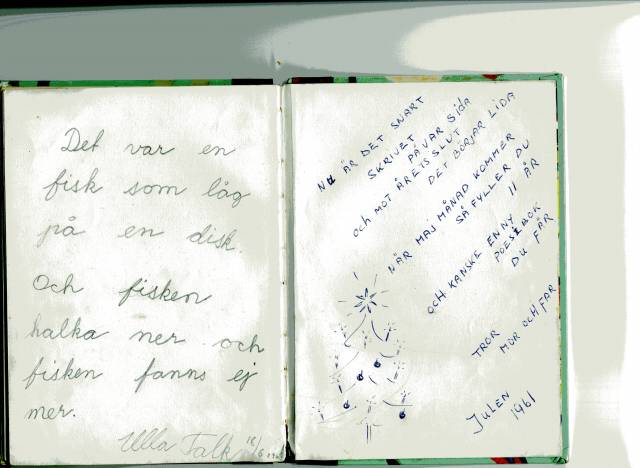 Det var en
fisk som låg
på en disk.
Och fisken
halka ner och
fisken fanns ej
mer.
Ulla Falk
NU ÄR DET SNART
SKRIVET
PÅ VAR SIDA
OCH MOT ÅRETS SLUT
DET BÖRJAR LIDA
NÄR MAJ MÅNAD KOMMER
SÅ FYLLER DU
11 ÅR
OCH KANSKE EN NY
POESIBOK
DU FÅR
TROR
MOR OCH FAR
JULEN
1961